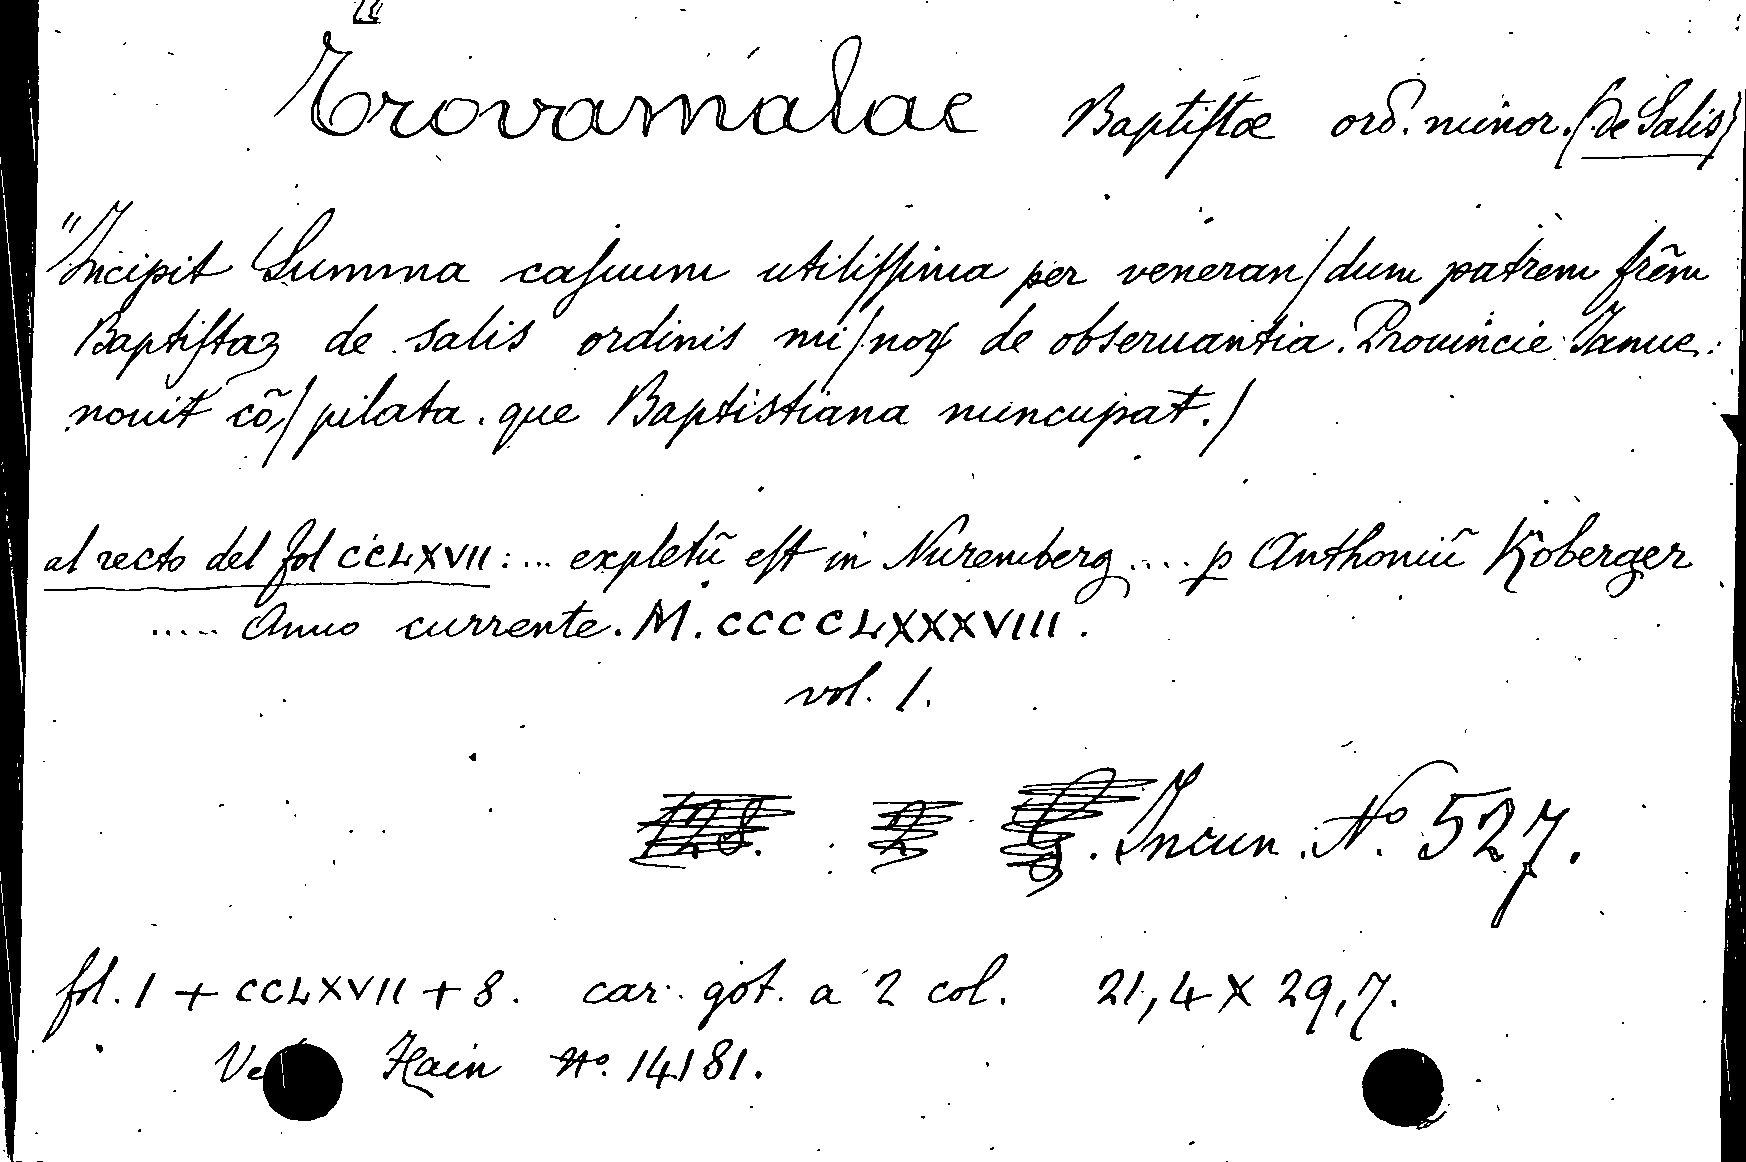 Trovamalae Baptiſtæ ord. minor. (de Salis)
"Incipit Summa caſuum utiliſſima per veneran/dum patrem frēm
Baptiſtaꝫ de salis ordinis mi/noꝝ de obseruantia. Prouincie Ianue.
nouit̄ cō/pilata. que Baptistiana nuncupat̄./
al recto del fol CCLXVII: ... expletū eſt in Nuremberg .... ꝑ Anthoniū Koberger
..... Anno currente. M. CCCCLXXXVIII.
vol. 1.
Incun. Nº. 527.
fol. 1 + CCLXVII + 8. car. got. a 2 col. 21,4 X 29,7.
Hain Nº. 14181.